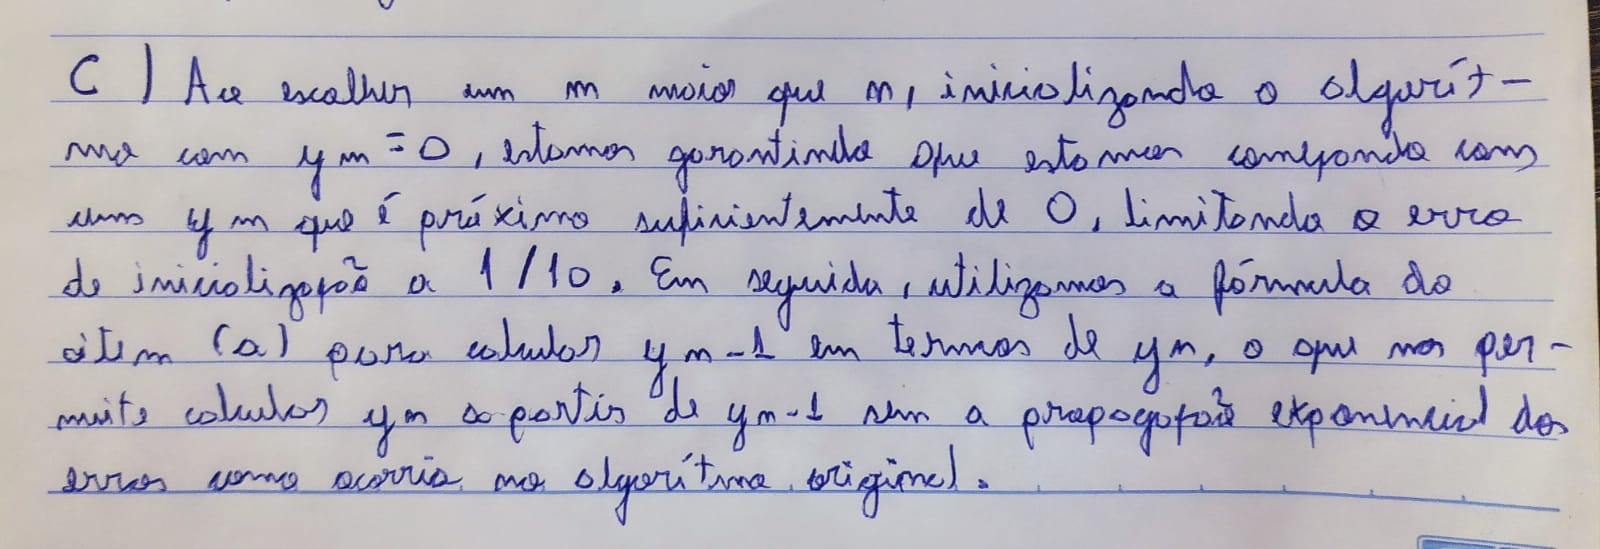 C) Ao escolher um m maior que n, inicializando o algorít-
mo com ym = 0, estamos garantindo que estamos começando com
um ym que é próximo suficientemente de 0, limitando o erro
de inicialização a 1/10. Em seguida, utilizamos a fórmula do
ítem (a) para calcular yn-1 em termos de yn, o que nos per-
mite calcular yn a partir de yn-1 sem a propagação exponencial dos
erros como ocorria no algorítmo original.